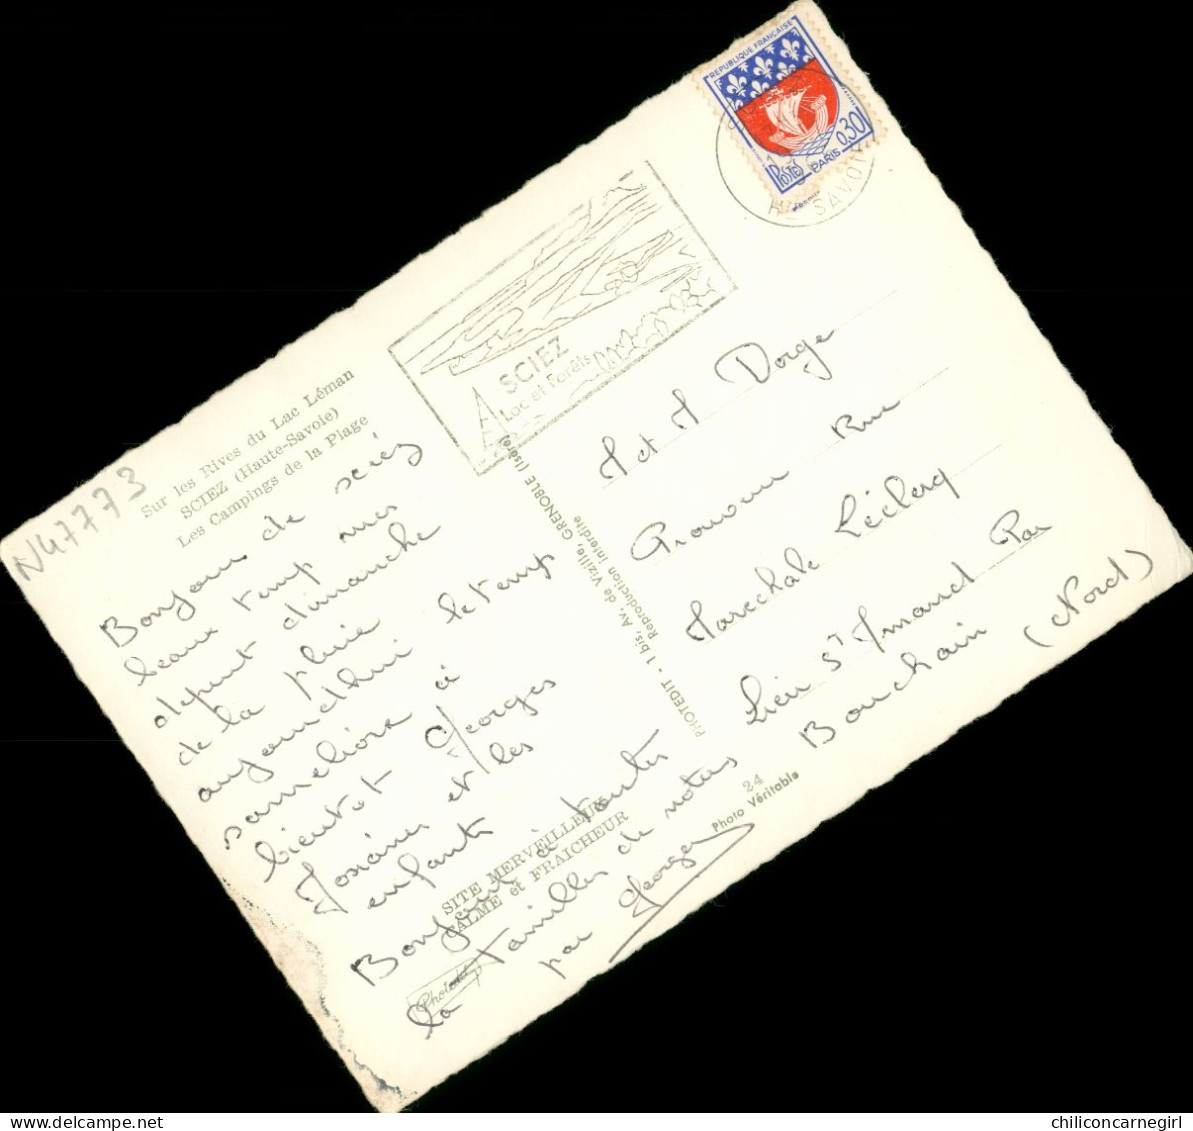 Sur les Rives du Lac Léman
SCIEZ (Haute-Savoie)
Les Campings de la Plage
N47773
Bonjour de sciez
beaux temp mes
depuit dimanche
de la pluie
aujourdhui le temp
sameliore a
bientot Georges
Josiane et les
enfants
Bonjour à toutes
la familles de notres
par Georges
SITE MERVEILLEUX
CALME et FRAICHEUR
Photedit
SCIEZ
Lac et Forêts
PHOTEDIT - 1 bis, Av. de Vizille, GRENOBLE (Isère)
Reproduction interdite
24
Photo Véritable
REPUBLIQUE FRANÇAISE
0,30
POSTES
PARIS
Hte SAVOIE
M et M Dorge
Rue
Marechale Léclerq
Lieu St Amand Par
Bouchain (Nord)
chiliconcarnegirl